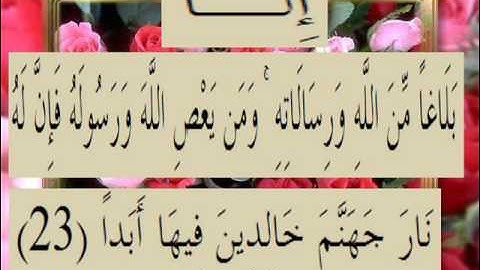 إِلَّا
بَلَاغاً مِّنَ اللَّهِ وَرِسَالَاتِهِ ۚ وَمَن يَعْصِ اللَّهَ وَرَسُولَهُ فَإِنَّ لَهُ
نَارَ جَهَنَّمَ خَالِدِينَ فِيهَا أَبَداً (23)